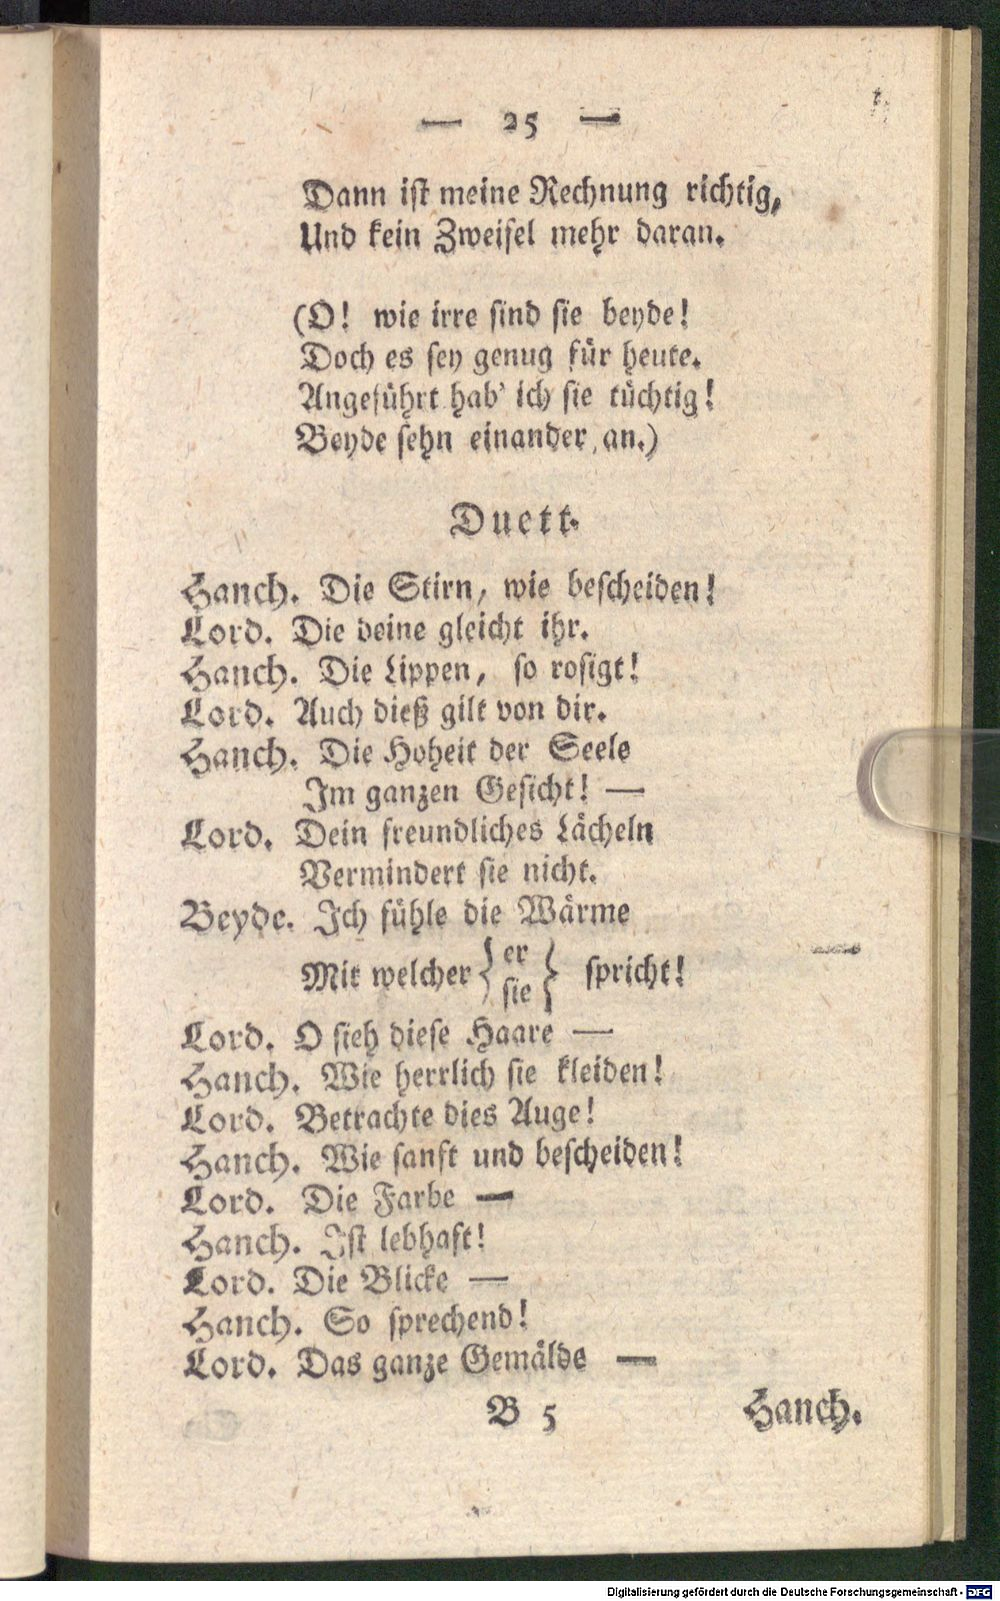 — 25 —
Dann iſt meine Rechnung richtig,
Und kein Zweifel mehr daran.
(O! wie irre ſind ſie beyde!
Doch es ſey genug für heute.
Angeführt hab' ich ſie tüchtig!
Beyde ſehn einander an.)
Duett.
Hanch. Die Stirn, wie beſcheiden!
Lord. Die deine gleicht ihr.
Hanch. Die Lippen, ſo roſigt!
Lord. Auch dieß gilt von dir.
Hanch. Die Hoheit der Seele
Im ganzen Geſicht! —
Lord. Dein freundliches Lächeln
Vermindert ſie nicht.
Beyde. Ich fühle die Wärme
Mit welcher { er ſie } ſpricht!
Lord. O ſieh dieſe Haare —
Hanch. Wie herrlich ſie kleiden!
Lord. Betrachte dies Auge!
Hanch. Wie ſanft und beſcheiden!
Lord. Die Farbe —
Hanch. Iſt lebhaft!
Lord. Die Blicke —
Hanch. So ſprechend!
Lord. Das ganze Gemälde —
B 5 Hanch.
Digitalisierung gefördert durch die Deutsche Forschungsgemeinschaft - DFG